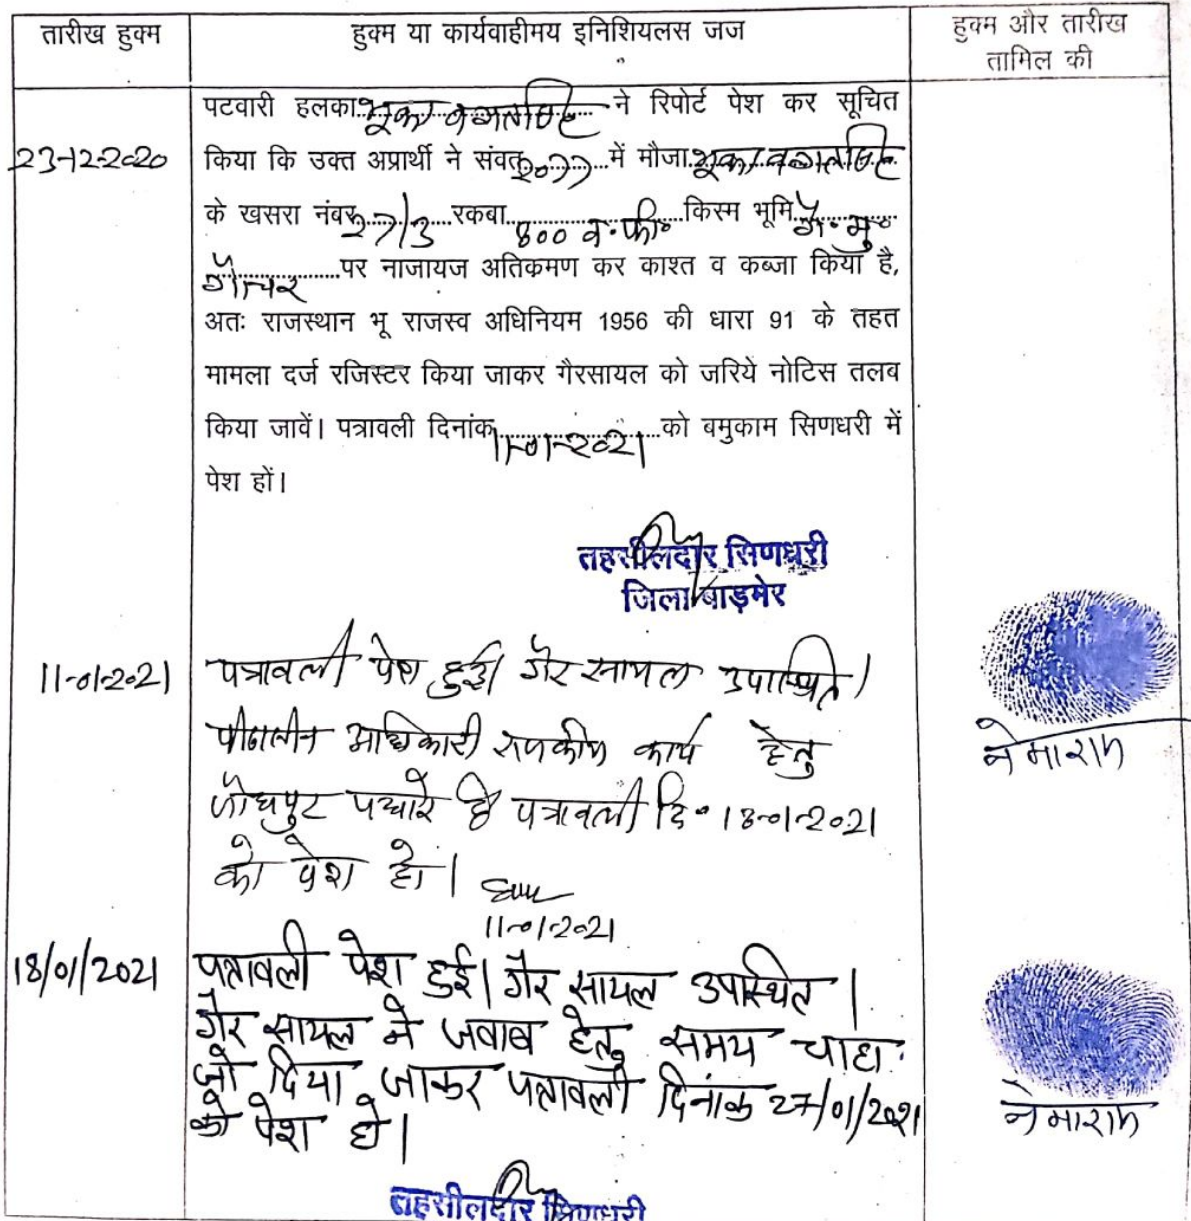 तारीख हुक्म
हुक्म या कार्यवाहीमय इनिशियलस जज
हुक्म और तारीख
तामिल की
23-12-2020
पटवारी हलका भूका भगतसिंह ने रिपोर्ट पेश कर सूचित
किया कि उक्त अप्रार्थी ने संवत् २०७७ में मौजा भूका भगतसिंह
के खसरा नंबर 27/3 रकबा 800 व.फी. किस्म भूमि गै.मु.
गोचर पर नाजायज अतिकमण कर काश्त व कब्जा किया है,
अतः राजस्थान भू राजस्व अधिनियम 1956 की धारा 91 के तहत
मामला दर्ज रजिस्टर किया जाकर गैरसायल को जरिये नोटिस तलब
किया जावें। पत्रावली दिनांक 11-01-2021 को बमुकाम सिणधरी में
पेश हों।
तहसीलदार सिणधरी
जिला बाड़मेर
11-01-2021
पत्रावली पेश हुई। गैर सायल उपस्थित।
पीठासीन अधिकारी राजकीय कार्य हेतु
जोधपुर पधारे है पत्रावली दि. 18-01-2021
को पेश हो।
11-01-2021
नेमाराम
18/01/2021
पत्रावली पेश हुई। गैर सायल उपस्थित।
गैर सायल ने जवाब हेतु समय चाहा
जो दिया जाकर पत्रावली दिनांक 27/01/2021
को पेश हो।
नेमाराम
तहसीलदार सिणधरी